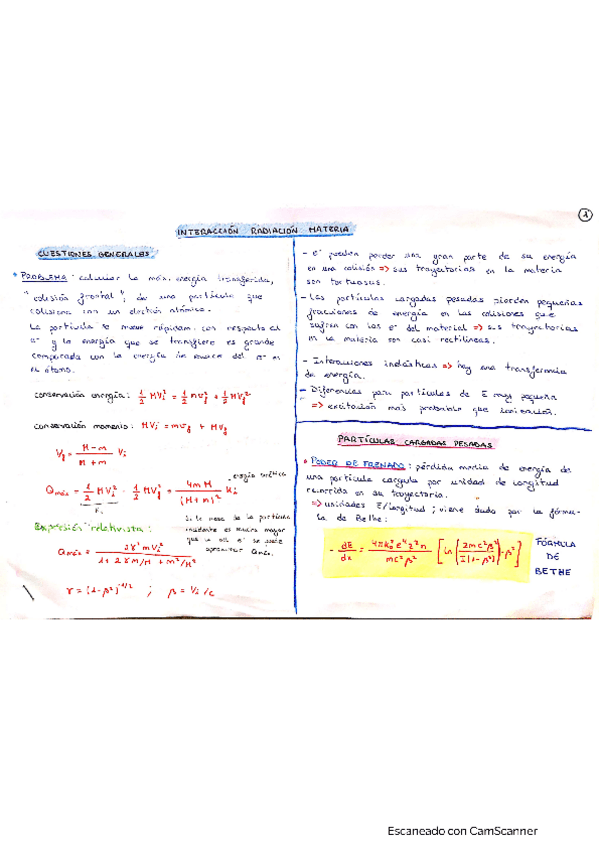 1
INTERACCIÓN RADIACIÓN MATERIA
CUESTIONES GENERALES
• PROBLEMA: calcular la máx. energía transferida,
"colisión frontal", de una partícula que
colisiona con un electrón atómico.
La partícula se mueve rápidam. con respecto al
e⁻ y la energía que se transfiere es grande
comparada con la energía de enlace del e⁻ en
el átomo.
conservación energía: 1/2 MVi² = 1/2 mvf² + 1/2 MVf²
conservación momento: MVi = mvf + MVf
Vf = (M-m)/(M+m) Vi
energía cinética
Qmáx = 1/2 MVi² - 1/2 MVf² = 4mM/(M+m)² Ki
Ki
Si la masa de la partícula
incidente es mucho mayor
que la del e⁻ se puede
aproximar Qmáx.
Expresión relativista:
Qmáx = 2γ²mVi² / (1+2γm/M + m²/M²)
γ = (1-β²)^-1/2 ; β = Vi/c
- e⁻ pueden perder una gran parte de su energía
en una colisión ⇒ sus trayectorias en la materia
son tortuosas.
- Las partículas cargadas pesadas pierden pequeñas
fracciones de energía en las colisiones que
sufren con los e⁻ del material ⇒ sus trayectorias
en la materia son casi rectilíneas.
- Interacciones inelásticas ⇒ hay una transferencia
de energía.
- Diferencias para partículas de E muy pequeña
⇒ excitación más probable que ionización.
PARTÍCULAS CARGADAS PESADAS
• PODER DE FRENADO: pérdida media de energía de
una partícula cargada por unidad de longitud
recorrida en su trayectoria.
⇒ unidades E/longitud; viene dado por la fórmu-
la de Bethe:
- dE/dx = 4πk₀²e⁴z²n / mc²β² [ln(2mc²β² / I(1-β²)) - β²]
FÓRMULA
DE
BETHE
Escaneado con CamScanner